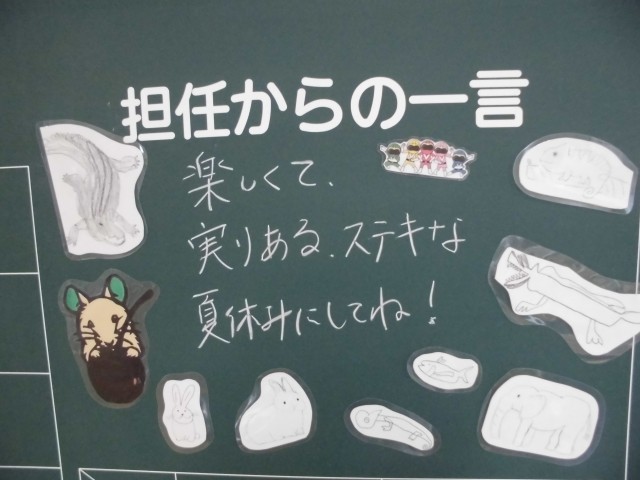 担任からの一言
楽しくて、
実りある、ステキな
夏休みにしてね!